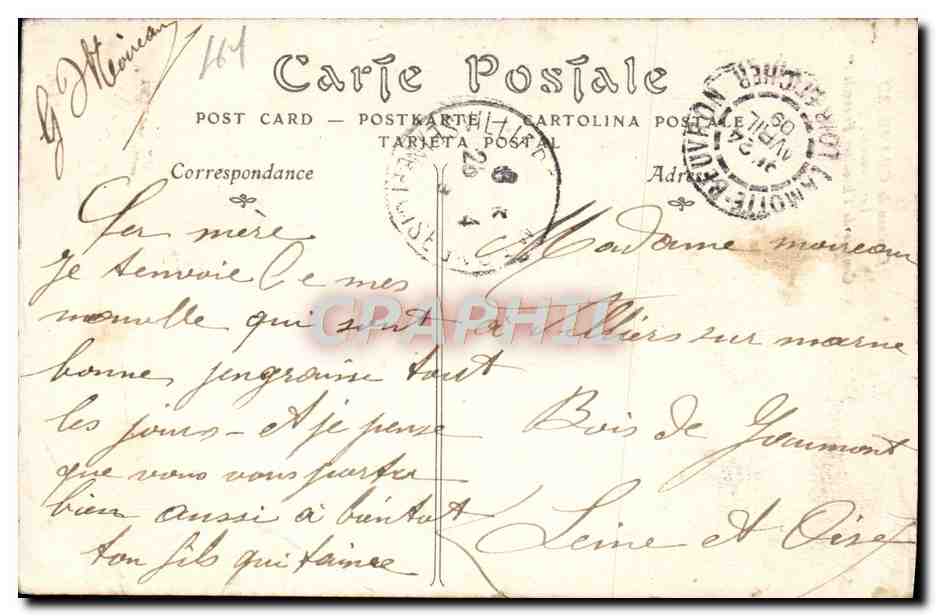 G Moireau
461
Carte Postale
POST CARD — POSTKARTE — CARTOLINA POSTALE
TARJETA POSTAL
Correspondance
Adresse
LAMOTTE-BEUVRON LOIR-ET-CHER
24
AVRIL
09
VILLIERS-SUR-MARNE SEINE-ET-OISE
25
4
Cer mère
Je tenvoie Ce mes
nouvelle qui sont
bonnes jengraisse tout
les jours - et je pense
que vous vous portez
bien aussi à bientot
ton fils qui taime
Madame moireau
à Villiers sur marne
Bois de Gaumont
Seine et Oise
CPAPHIL